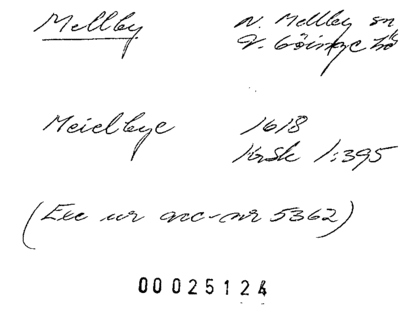 Mellby N. Mellby sn
V. Göinge hd
Meielbye 1618
KrSk 1:395
(Exc ur acc-nr 5362)
00025124